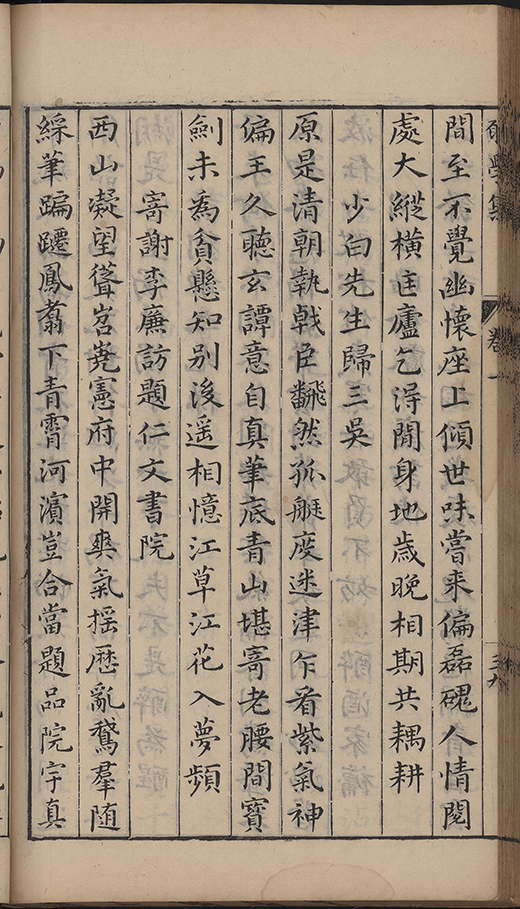 學集 卷一
間至不覺幽懷座上傾世味嘗来偏磊磈人情閱
處大縱橫匡廬乞淂閒身地歳晚相期共耦耕
少白先生歸三吳
原是清朝執戟臣飜然孤艇度迷津乍看紫氣神
偏王久聽玄譚意自真筆底青山堪寄老腰間寳
劍未為貧懸知别後遥相憶江草江花入夢頻
寄謝李廉訪題仁文書院
西山凝望聳岧嶤憲府中開爽氣揺歷亂鵞羣随
綵筆蹁躚鳳翥下青霄河濱豈合當題品院宇真